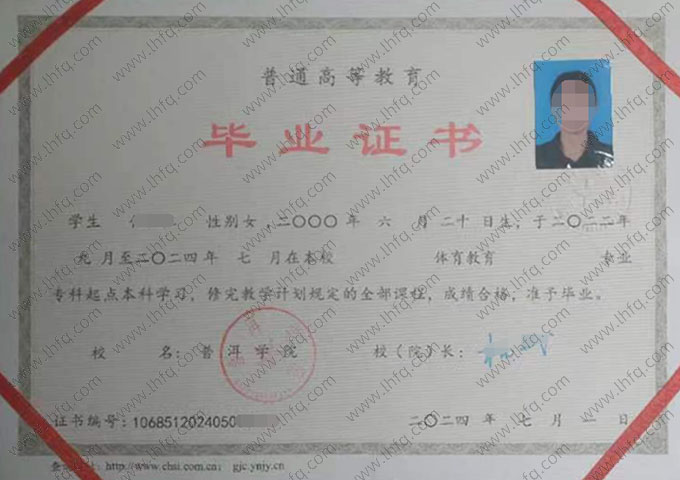 普通高等教育
毕业证书
学生 性别女，二〇〇〇年 六 月 二十 日生，于二〇二二年
九 月至二〇二四年 七 月在本校 体育教育 专业
专科起点本科学习，修完教学计划规定的全部课程，成绩合格，准予毕业。
校 名：普洱学院 校（院）长：
证书编号：1068512024050 二〇二四 年 七 月 一 日
http://www.chsi.com.cn; gjc.ynjy.cn
www.lhfq.com